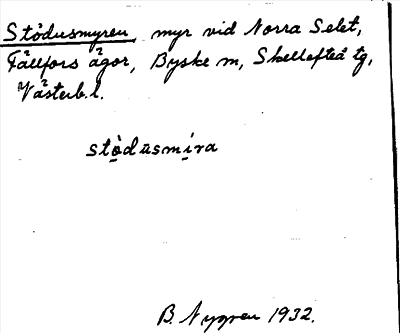 Stödusmyren, myr vid Norra Selet,
Fällfors ägor, Byske m, Skellefteå tg,
Västerb.l.
stòdusmíra
B. Nygren 1932.